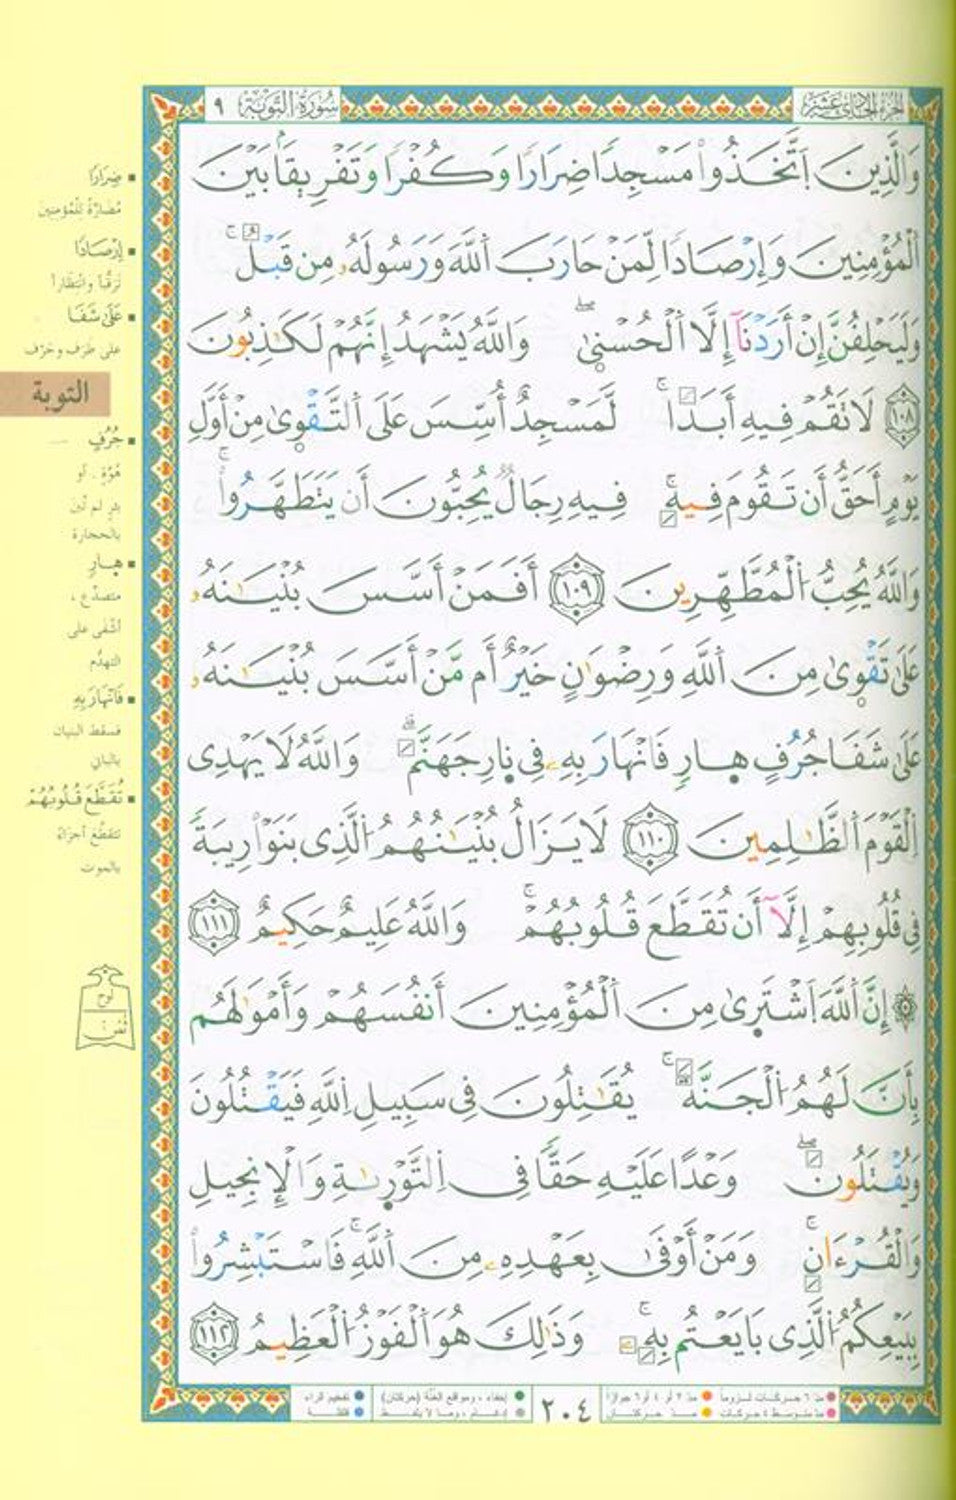 الجزء الحادي عشر
سُورَةُ التَّوْبَةِ ٩
وَالَّذِينَ اَتَّخَذُواْ مَسْجِدًا ضِرَارًا وَكُفْرًا وَتَفْرِيقًا بَيْنَ
اَلْمُؤْمِنِينَ وَإِرْصَادًا لِّمَنْ حَارَبَ اَللَّهَ وَرَسُولَهُۥ مِن قَبْلُ ج
وَلَيَحْلِفُنَّ إِنْ أَرَدْنَآ إِلَّا اَلْحُسْنىٰ صلے وَاللَّهُ يَشْهَدُ إِنَّهُمْ لَكَٰذِبُونَ
١٠٨ لَا تَقُمْ فِيهِ أَبَدًا ج لَّمَسْجِدٌ أُسِّسَ عَلَى اَلتَّقْوىٰ مِنْ أَوَّلِ
يَوْمٍ أَحَقُّ أَن تَقُومَ فِيهِ ج فِيهِ رِجَالٌ يُحِبُّونَ أَن يَتَطَهَّرُواْ ج
وَاللَّهُ يُحِبُّ اَلْمُطَّهِّرِينَ ١٠٩ أَفَمَنْ أَسَّسَ بُنْيَٰنَهُۥ
عَلَىٰ تَقْوىٰ مِنَ اَللَّهِ وَرِضْوَٰنٍ خَيْرٌ أَم مَّنْ أَسَّسَ بُنْيَٰنَهُۥ
عَلَىٰ شَفَا جُرُفٍ هارٍ فَانْهَارَ بِهِۦ فِي نارِ جَهَنَّمَ قلے وَاللَّهُ لَا يَهْدِى
اِلْقَوْمَ اَلظَّٰلِمِينَ ١١٠ لَا يَزَالُ بُنْيَٰنُهُمُ اُلَّذِى بَنَوْاْ رِيبَةً
فِى قُلُوبِهِمْ إِلَّآ أَن تُقَطَّعَ قُلُوبُهُمْ ج وَاللَّهُ عَلِيمٌ حَكِيمٌ ١١١
۞ إِنَّ اَللَّهَ اَشْتَرىٰ مِنَ اَلْمُؤْمِنِينَ أَنفُسَهُمْ وَأَمْوَٰلَهُم
بِأَنَّ لَهُمُ اُلْجَنَّةَ ج يُقَٰتِلُونَ فِى سَبِيلِ اِللَّهِ فَيَقْتُلُونَ
وَيُقْتَلُونَ صلے وَعْدًا عَلَيْهِ حَقًّا فِى اِلتَّوْرىٰةِ وَالْإِنجِيلِ
وَالْقُرْءَانِ ج وَمَنْ أَوْفَىٰ بِعَهْدِهِۦ مِنَ اَللَّهِ ج فَاسْتَبْشِرُواْ
بِبَيْعِكُمُ اُلَّذِى بَايَعْتُم بِهِۦ ج وَذَٰلِكَ هُوَ اَلْفَوْزُ اُلْعَظِيمُ ١١٢
▪ ضِرَارًا
مُضَارَّةً لِلْمُؤْمِنِينَ
▪ إِرْصَادًا
تَرَقُّباً وانْتِظَاراً
▪ عَلَىٰ شَفَا
على طَرَف وحَرْف
التوبة
▪ جُرُفٍ
هُوَّةٍ . أو
بئرٍ لم تُبْنَ
بالحجارة
▪ هارٍ
متصدِّع ،
أشْفى على
التهدُّم
▪ فَانْهَارَ بِهِ
فسقط البنيان
بالباني
▪ تُقَطَّعَ قُلُوبُهُمْ
تتقطَّعَ أجزاءً
بالموت
مدّ ٦ حركات لزوماً
مدّ ٢ أو ٤ أو ٦ جوازاً
مدّ متوسط ٤ حركات
مدّ حركتان
٢٠٤
إخفاء ، ومواقع الغُنَّة (حركتان)
إدغام ، وما لا يُلفظ
تفخيم الراء
قلقلة